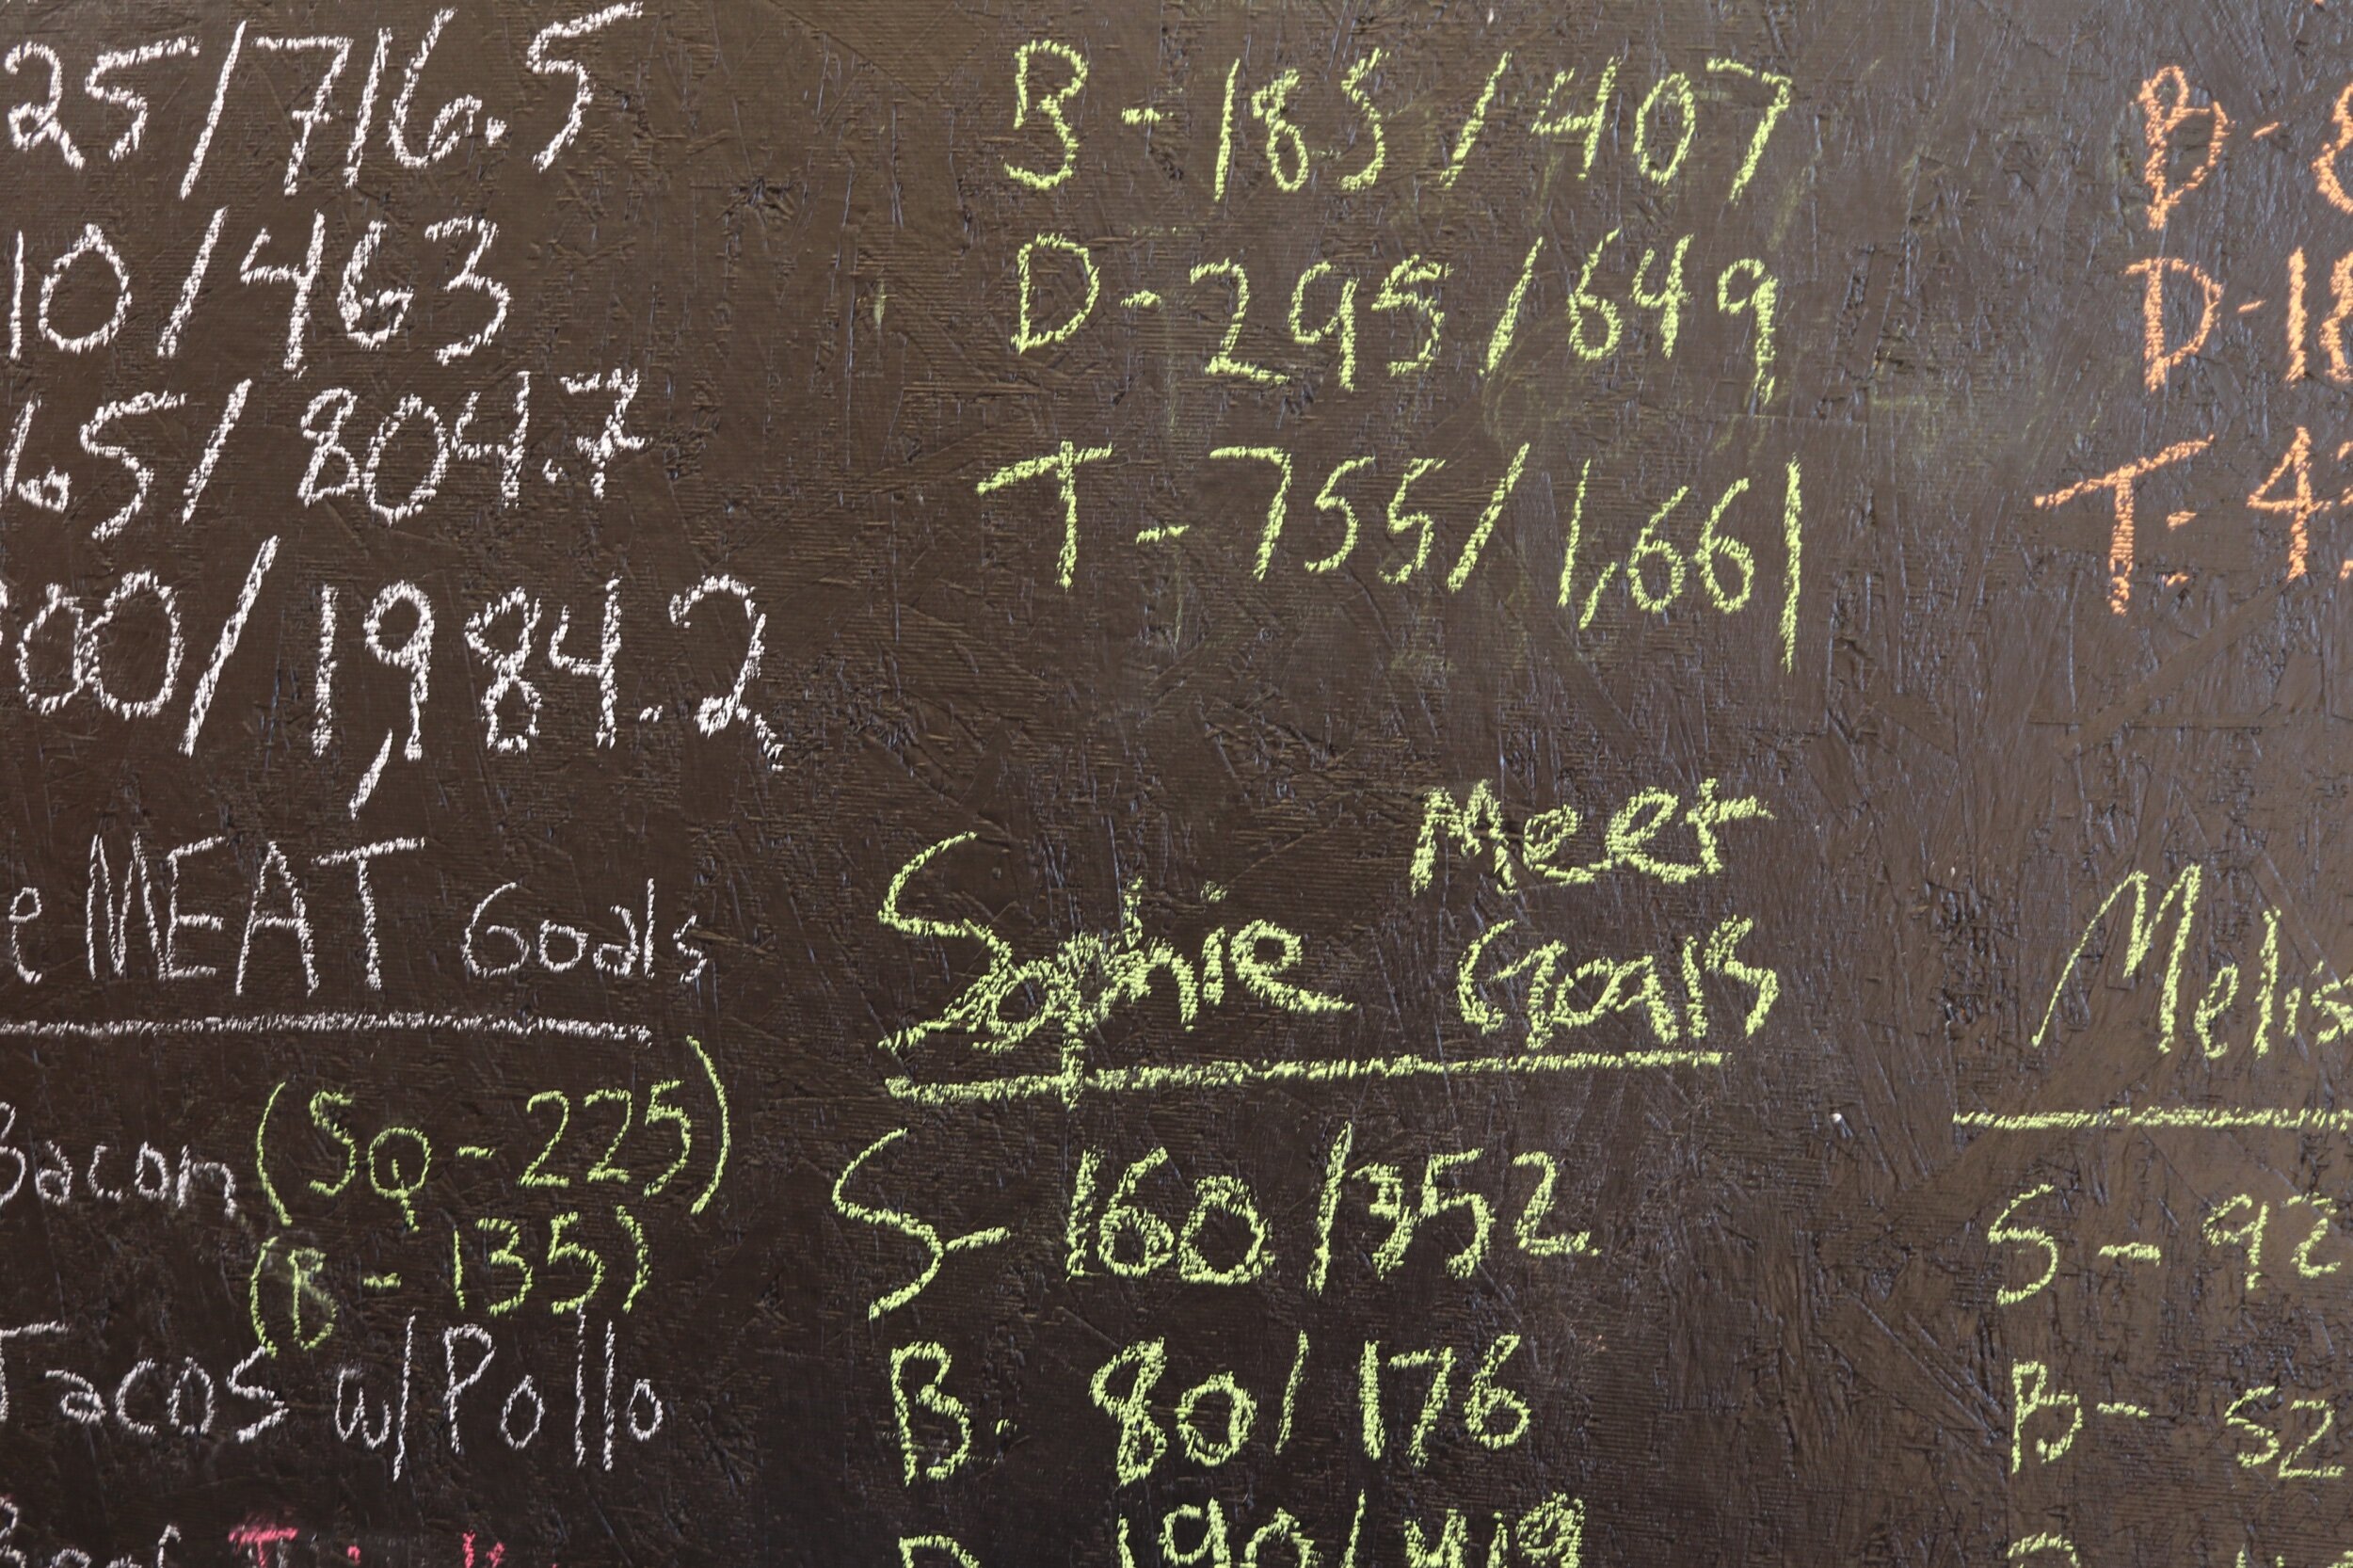 25/716.5
10/463
6.5/804.7
00/1,984.2
e MEAT Goals
Bacon (SQ-225)
(B-135)
Tacos w/Pollo
B-185/407
D-295/649
T-755/1,661
Sophie Meet Goals
S-160/352
B. 80/176
D 190/419
B-8
D-18
T-4
Melis
S-92
B-52